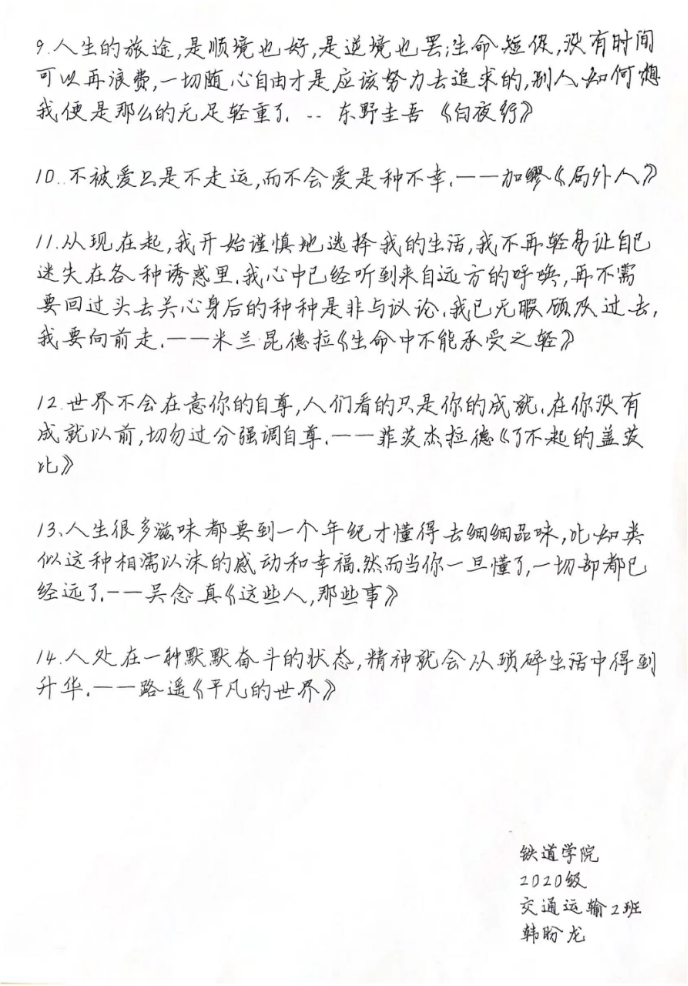 9.人生的旅途,是顺境也好,是逆境也罢;生命短促,没有时间
可以再浪费,一切随心自由才是应该努力去追求的,别人如何想
我便是那么的无足轻重了. -- 东野圭吾 《白夜行》
10..不被爱只是不走运,而不会爱是种不幸.——加缪《局外人》
11.从现在起,我开始谨慎地选择我的生活,我不再轻易让自己
迷失在各种诱惑里.我心中已经听到来自远方的呼唤,再不需
要回过头去关心身后的种种是非与议论.我已无暇顾及过去,
我要向前走.——米兰昆德拉《生命中不能承受之轻》
12.世界不会在意你的自尊,人们看的只是你的成就.在你没有
成就以前,切勿过分强调自尊.——菲茨杰拉德《了不起的盖茨
比》
13.人生很多滋味都要到一个年纪才懂得去细细品味,比如类
似这种相濡以沫的感动和幸福.然而当你一旦懂了,一切却都已
经远了.——吴念真《这些人,那些事》
14.人处在一种默默奋斗的状态,精神就会从琐碎生活中得到
升华.——路遥《平凡的世界》
铁道学院
2020级
交通运输2班
韩盼龙